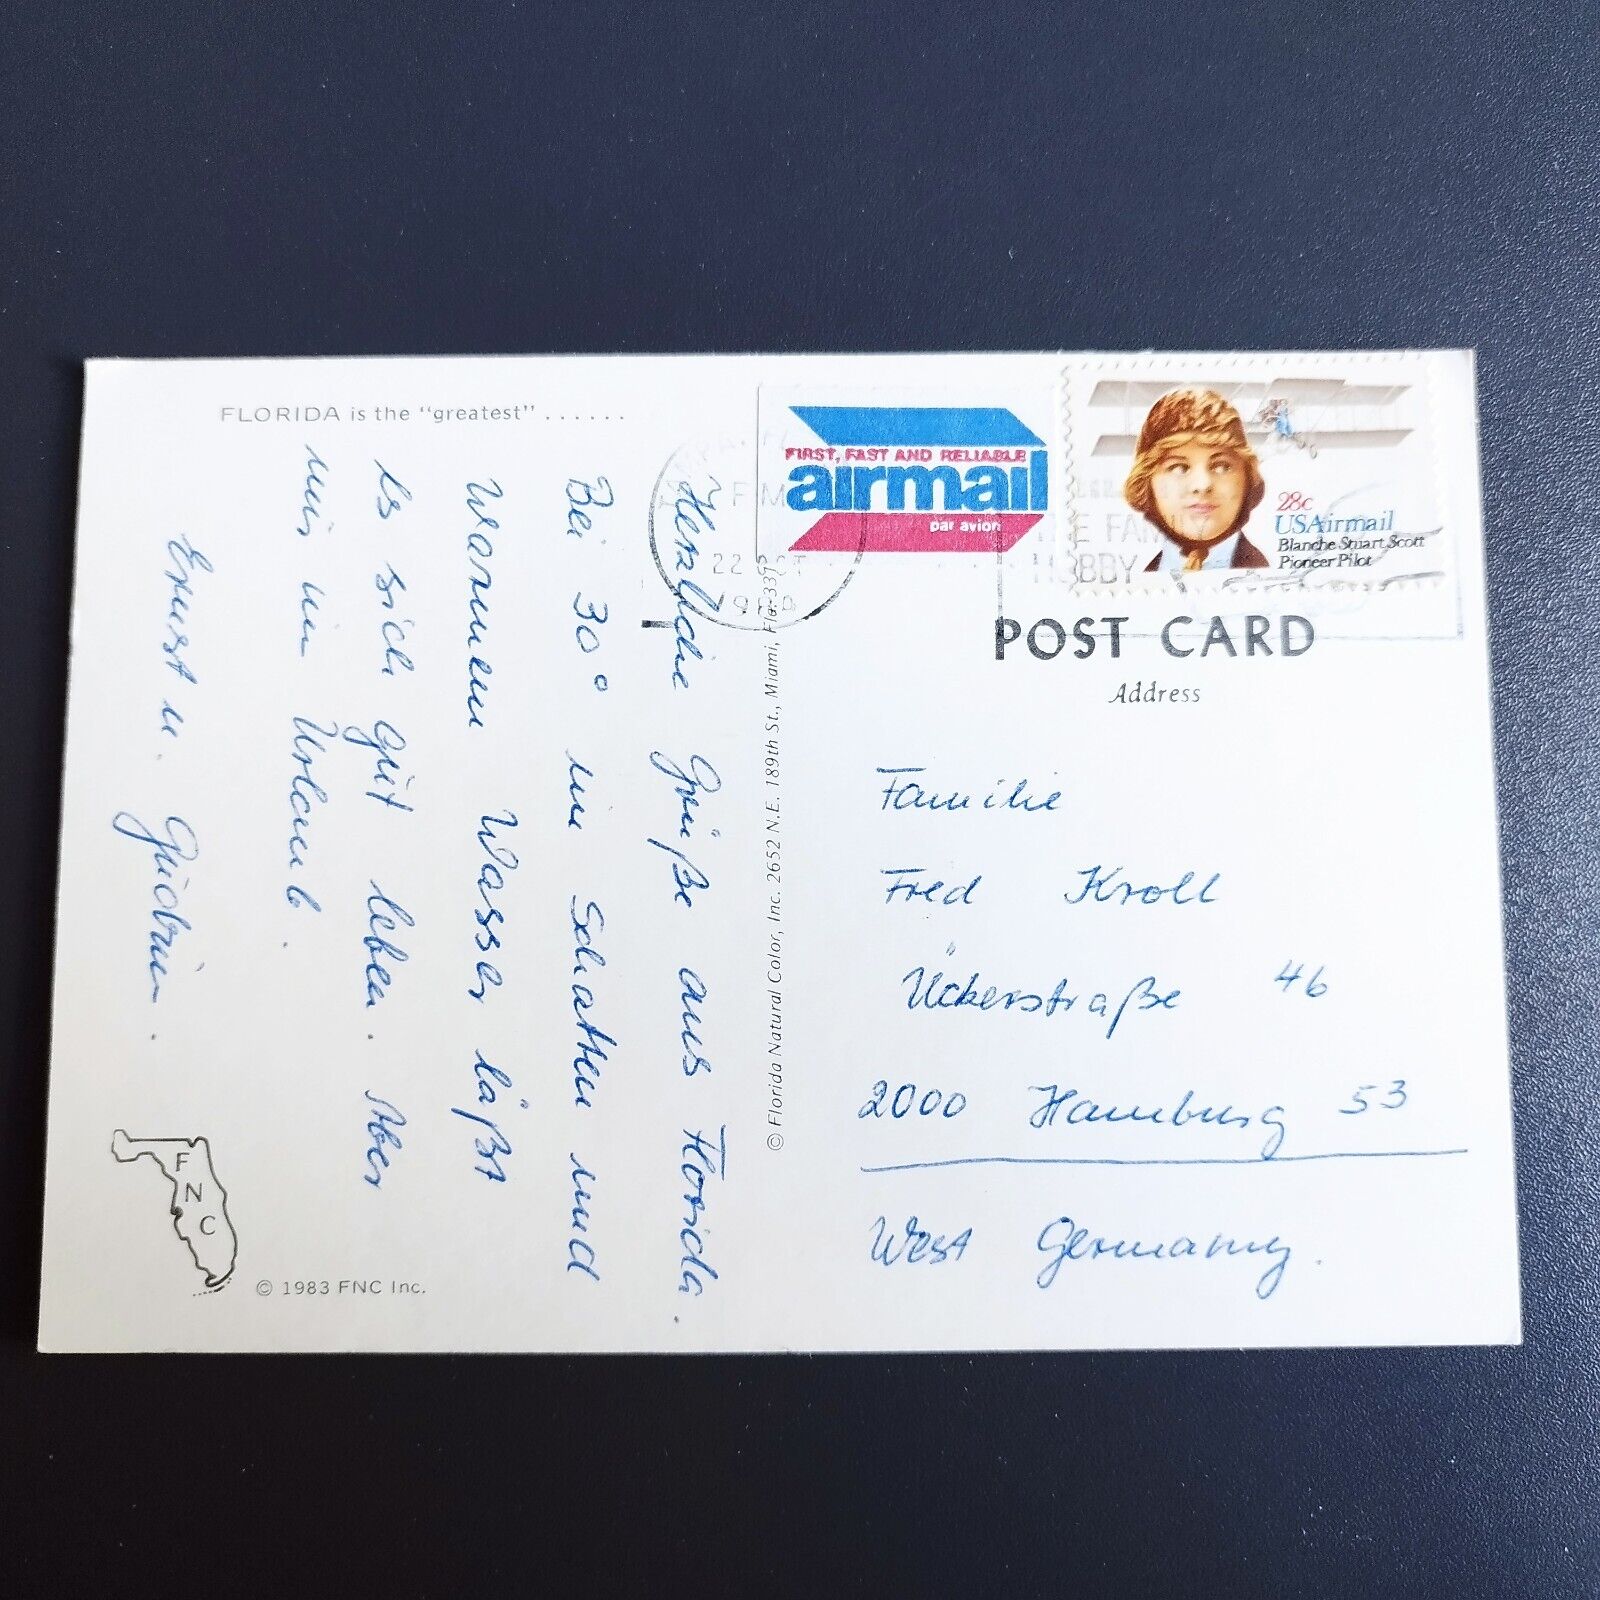 FLORIDA is the "greatest" ......
Herzliche Grüße aus Florida.
Bei 30° im Schatten und
Warmen Wasser läßt
es sich gut leben. Aber
nur im Urlaub.
Ernst u. Gudrun.
FNC
© 1983 FNC Inc.
© Florida Natural Color, Inc. 2652 N.E. 189th St., Miami, Fla. 331
TAMPA, FL
PM
22 OCT
FIRST, FAST AND RELIABLE
airmail
par avion
THE FAMILY
HOBBY
28c
USAirmail
Blanche Stuart Scott
Pioneer Pilot
POST CARD
Address
Familie
Fred Kroll
Ückerstraße 46
2000 Hamburg 53
West Germany.